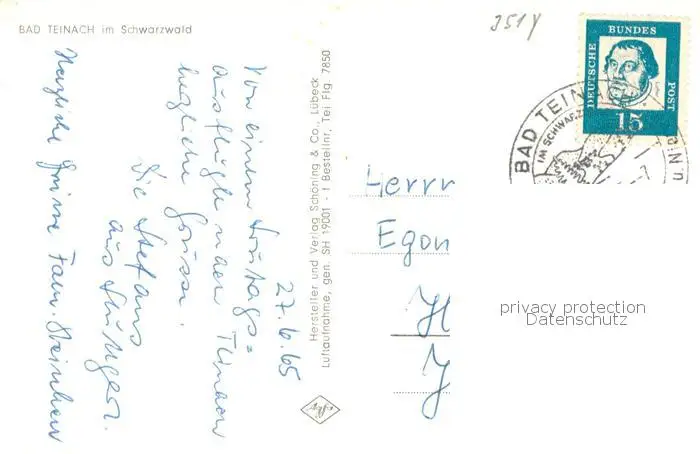 BAD TEINACH im Schwarzwald
27.6.65
Von einem Sonntags=
ausflügle nach Teinach
herzliche Grüsse.
Die Stefans
aus Stuttgart.
Herzliche Grüsse Fam.
Hersteller und Verlag Schöning & Co., Lübeck
Luftaufnahme, gen. SH 19001 - 1 Bestellnr, Tei Flg 7850
351Y
DEUTSCHE BUNDES POST
15
BAD TEINACH
IM SCHWARZ
Herrn
Egon
H
privacy protection
Datenschutz